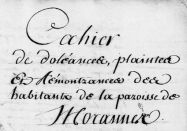 Cahier
de doléances, plaintes
et Rémontrances des
habitants de la paroisse de
Morannes